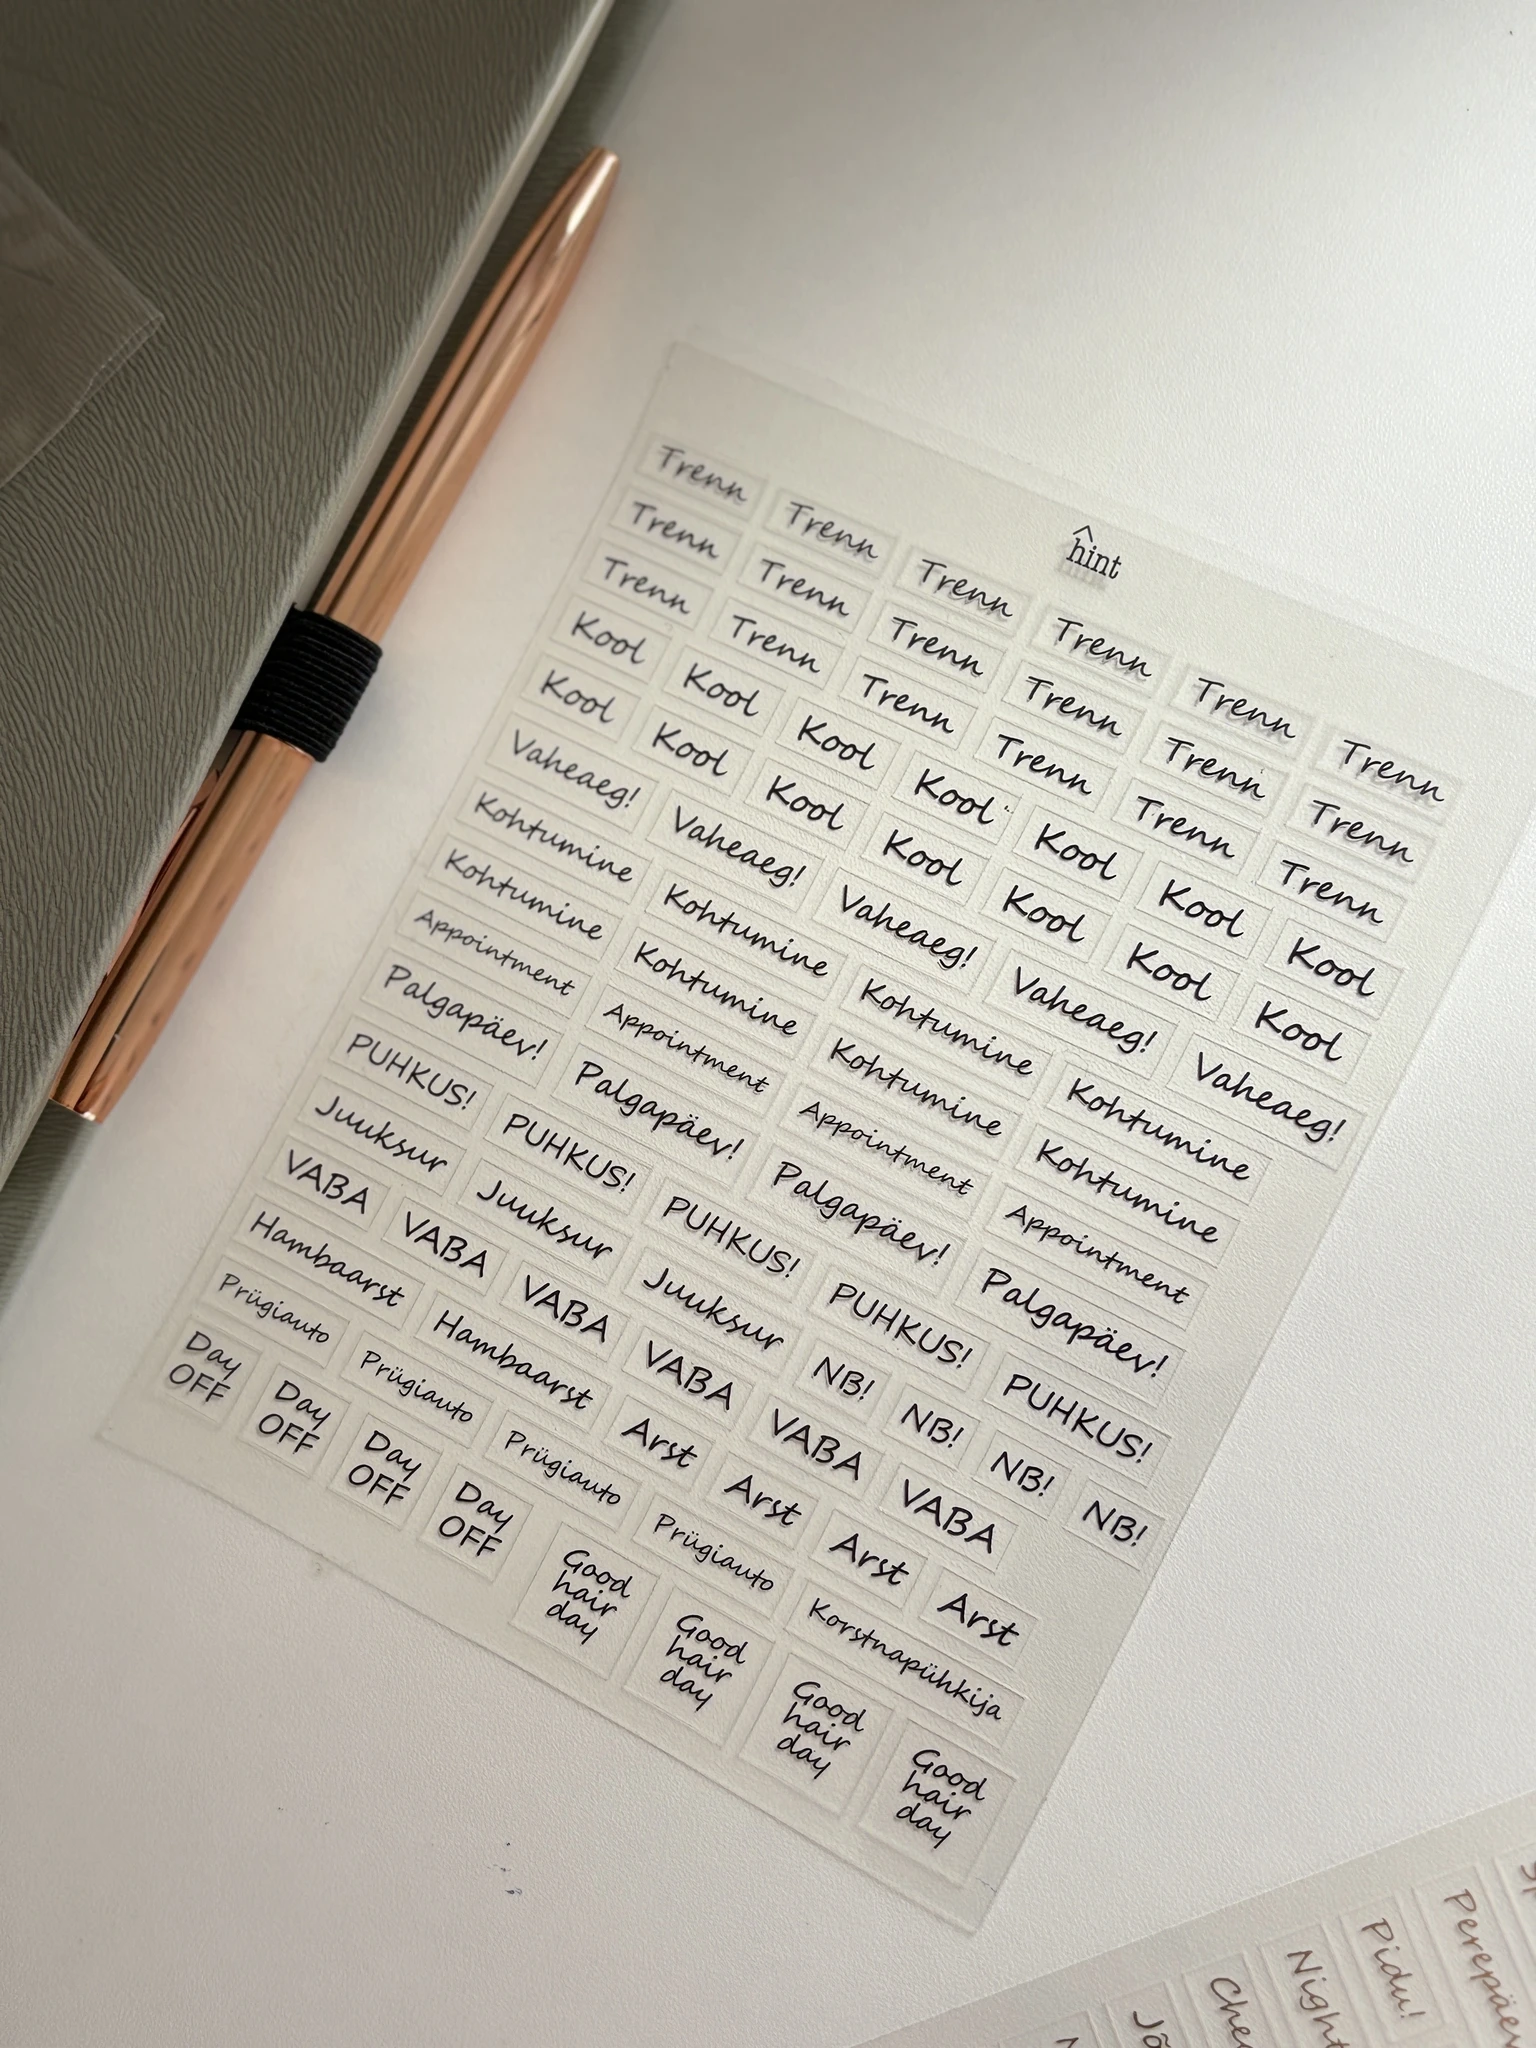 hint
Trenn Trenn Trenn Trenn Trenn Trenn
Trenn Trenn Trenn Trenn Trenn Trenn
Trenn Trenn Trenn Trenn Trenn Trenn
Kool Kool Kool Kool Kool Kool Kool
Kool Kool Kool Kool Kool Kool Kool
Vaheaeg! Vaheaeg! Vaheaeg! Vaheaeg! Vaheaeg!
Kohtumine Kohtumine Kohtumine Kohtumine
Kohtumine Kohtumine Kohtumine Kohtumine
Appointment Appointment Appointment Appointment
Palgapäev! Palgapäev! Palgapäev! Palgapäev!
PUHKUS! PUHKUS! PUHKUS! PUHKUS! PUHKUS!
Juuksur Juuksur Juuksur NB! NB! NB! NB!
VABA VABA VABA VABA VABA VABA
Hambaarst Hambaarst Arst Arst Arst Arst
Prügiauto Prügiauto Prügiauto Prügiauto Korstnapühkija
Day Day Day Day
OFF OFF OFF OFF
Good Good Good Good
hair hair hair hair
day day day day
Night
Pidu!